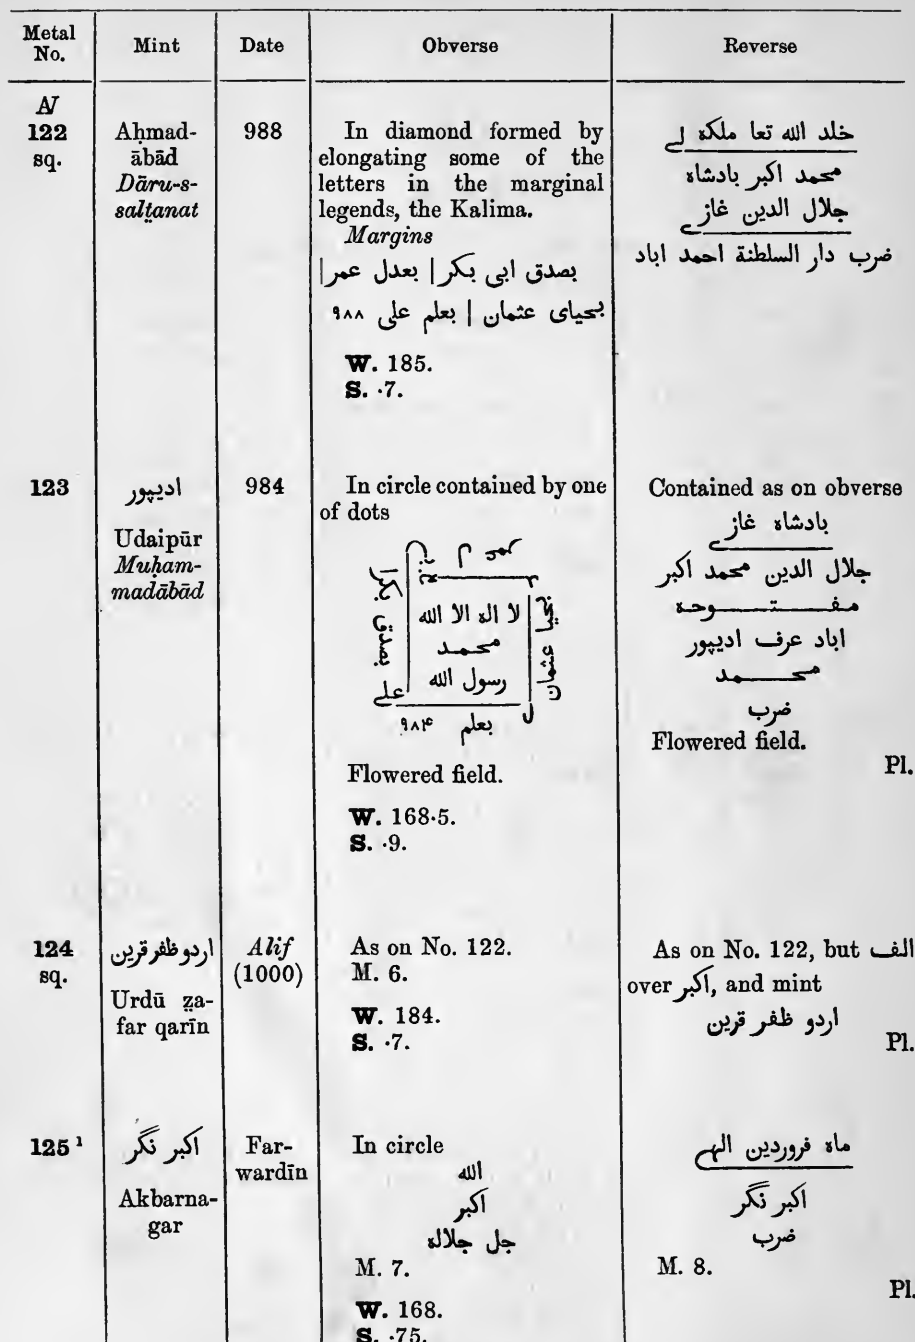 Metal No.
Mint
Date
Obverse
Reverse
N
122
sq.
Aḥmad-
ābād
Dāru-s-
salṭanat
988
In diamond formed by
elongating some of the
letters in the marginal
legends, the Kalima.
Margins
بصدق ابی بکر | بعدل عمر |
بحیای عثمان | بعلم علی ۹۸۸
W. 185.
S. ·7.
خلد الله تعا ملکه لے
محمد اکبر بادشاه
جلال الدین غازے
ضرب دار السلطنة احمد اباد
123
ادیپور
Udaipūr
Muḥam-
madābād
984
In circle contained by one
of dots
لا اله الا الله
محمد
رسول الله
بصدق
بکر
عثمان
علے
بعلم ۹۸۴
Flowered field.
W. 168·5.
S. ·9.
Contained as on obverse
بادشاه غازے
جلال الدین محمد اکبر
مفتوحه
اباد عرف ادیپور
محمد
ضرب
Flowered field.
Pl.
124
sq.
اردو ظفر قرین
Urdū ẓa-
far qarīn
Alif
(1000)
As on No. 122.
M. 6.
W. 184.
S. ·7.
As on No. 122, but الف
over اکبر, and mint
اردو ظفر قرین
Pl.
125 ¹
اکبر نگر
Akbarna-
gar
Far-
wardīn
In circle
الله
اکبر
جل جلاله
M. 7.
W. 168.
S. ·75.
ماه فروردین الهے
اکبر نگر
ضرب
M. 8.
Pl.